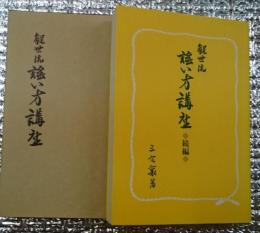 観世流
謡い方講座
観世流
謡い方講座
※続編※
三宅襄著